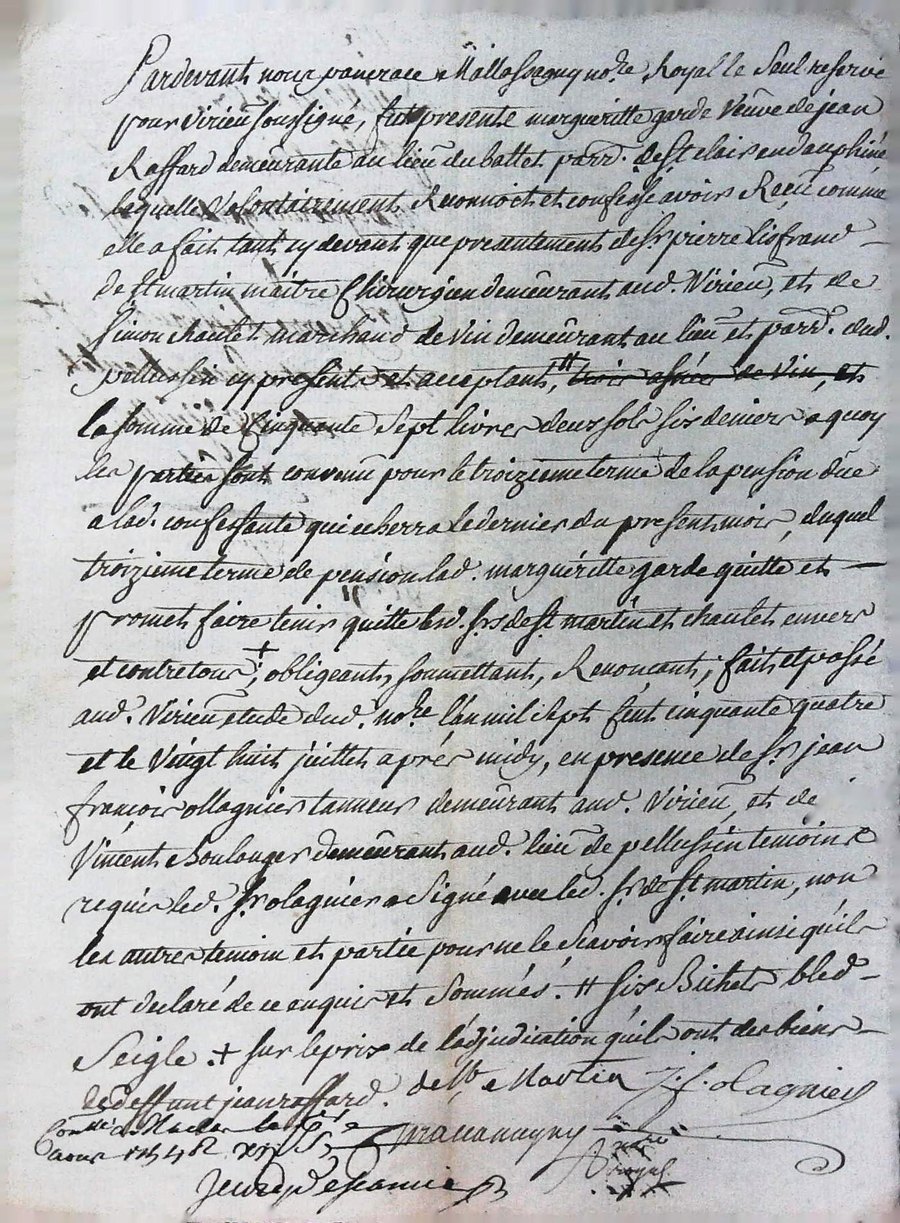 Pardevant nous pancrace Mallassagny no.re Royal le Seul reservé
pour Virieu soussigné, fut presente margueritte garde veuve de jean
Raffard demeurante au lieu du battet parr. de St clair en dauphiné
laquelle volontairement Reconnoit et confesse avoir Reçu comme
elle a fait tant cy devant que presentement de Sr pierre lisfrand
de St martin maitre Chirurgien demeurant aud. Virieu, et de
Simon chaulet marchand de vin demeurant au lieu et parr. dud.
pellussin cy present et acceptant, # trois asnées de vin, et
la somme de Cinquante Sept livres deux sols six deniers a quoy
les parties sont convenu pour le troizieme terme de la pension düe
a lad. confessante qui echerra le dernier du present mois, duquel
troizieme terme de pension lad. margueritte garde quitte et
promet faire tenir quitte lesd. Srs de St martin et chaulet envers
et contre tous + ; obligeant, soumettant, Renonçant ; fait et passé
aud. Virieu etude dud. no.re l'an mil Sept Cent cinquante quatre
et le Vingt huit juillet après midy, en presence de Sr jean
françois ollagnier tanneur demeurant aud. Virieu, et de
Vincent Boulanger demeurant aud. lieu de pellussin temoins
requis led. Sr olagnier a Signé avec led. Sr de St martin, non
les autres temoin et partie pour ne le Scavoir faire ainsi qu'ils
ont declaré de ce enquis et Sommés. # six Bichets bled
Seigle. + sur le prix de l'adjudication qu'ils ont des biens
de deffunt jean raffard. de St Martin J. f. olagnier
Con.llé a Maclas le
aoust